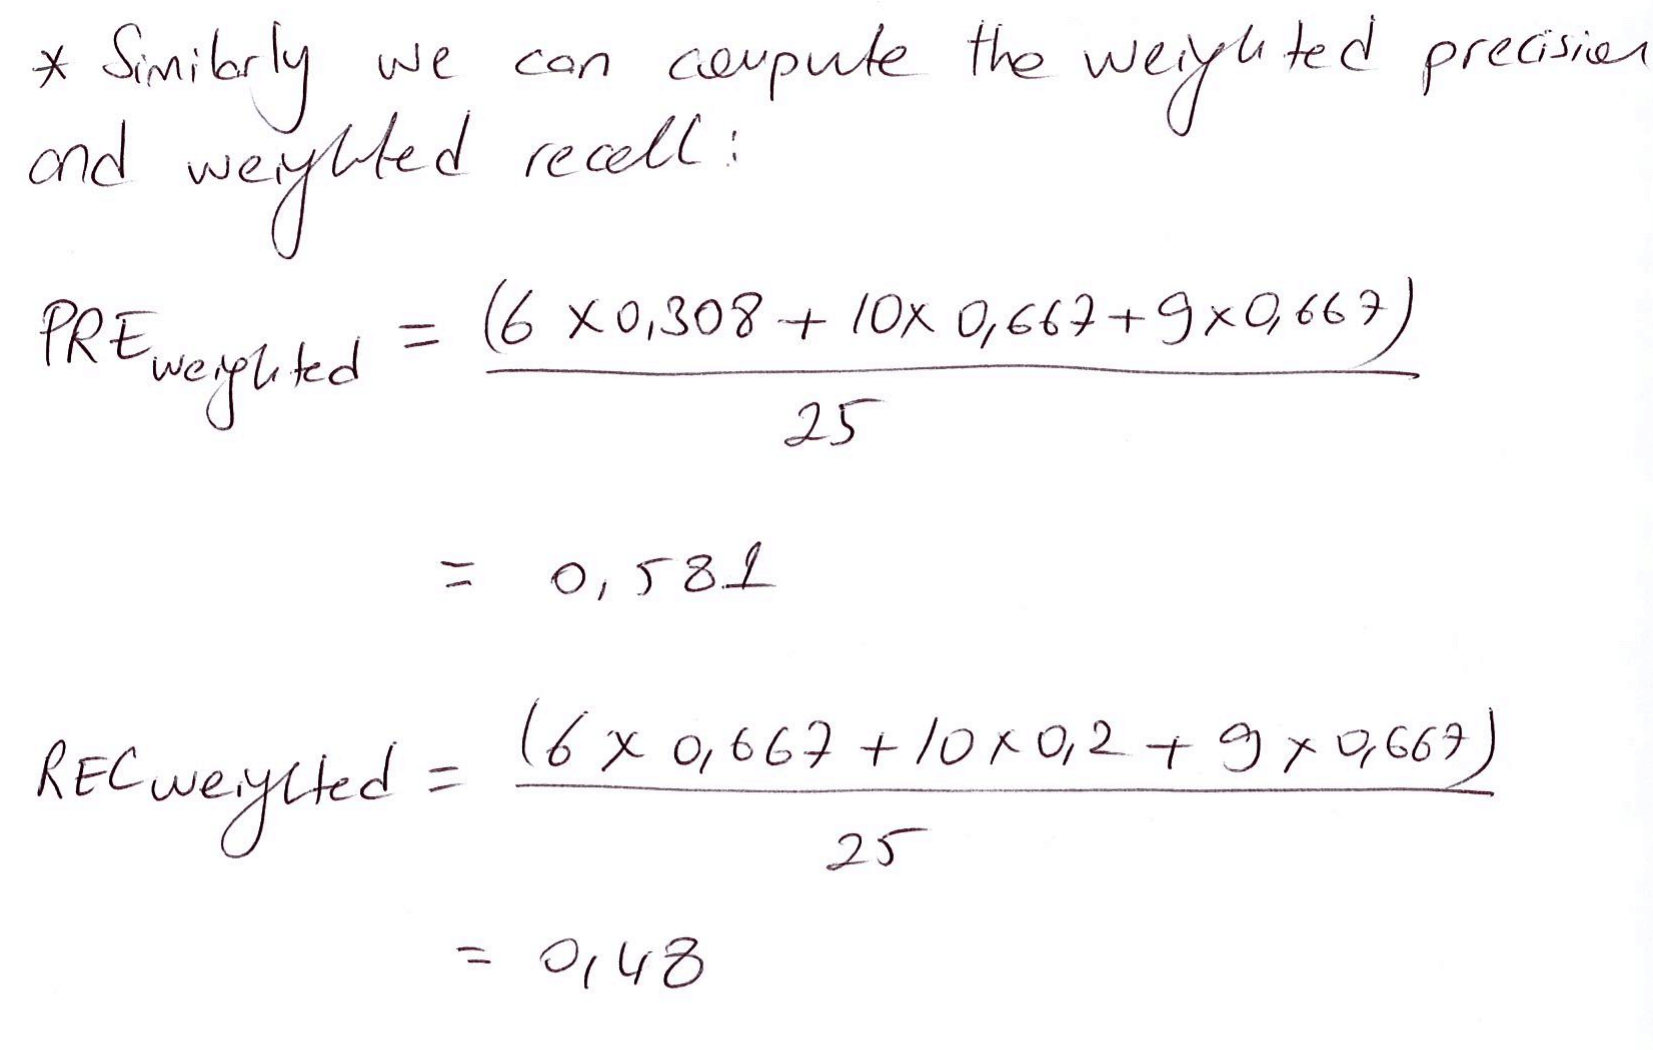 * Similarly we can compute the weighted precision
and weighted recall:
PRE weighted = (6 × 0,308 + 10 × 0,667 + 9 × 0,667)
25
= 0,581
REC weighted = (6 × 0,667 + 10 × 0,2 + 9 × 0,667)
25
= 0,48